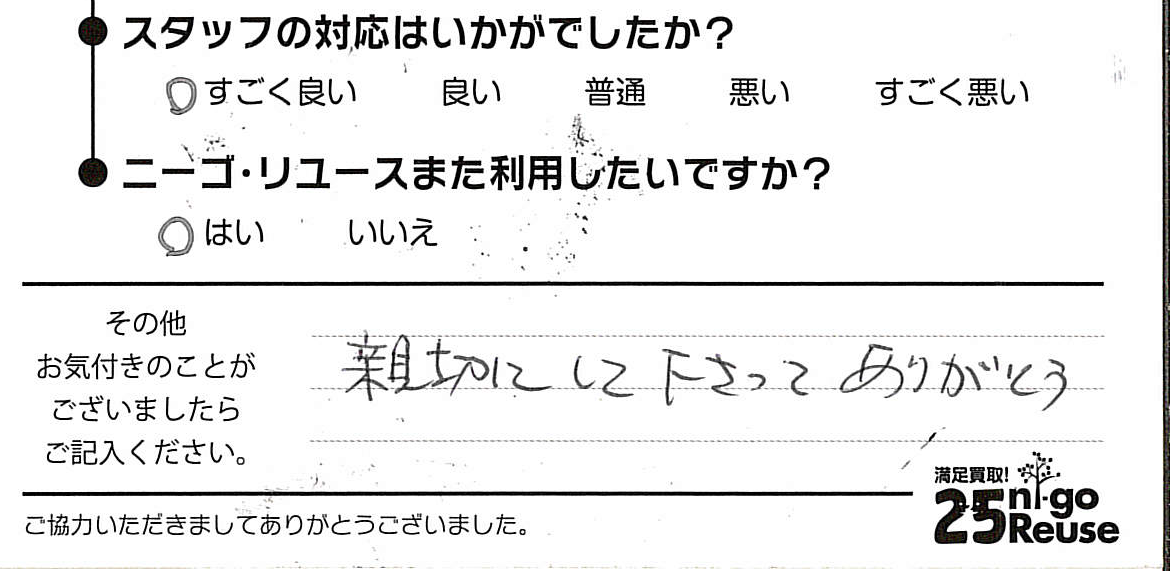 スタッフの対応はいかがでしたか?
すごく良い 良い 普通 悪い すごく悪い
ニーゴ・リユースまた利用したいですか?
はい いいえ
その他
お気付きのことが
ございましたら
ご記入ください。
親切にして下さってありがとう
満足買取!
25 ni-go
Reuse
ご協力いただきましてありがとうございました。